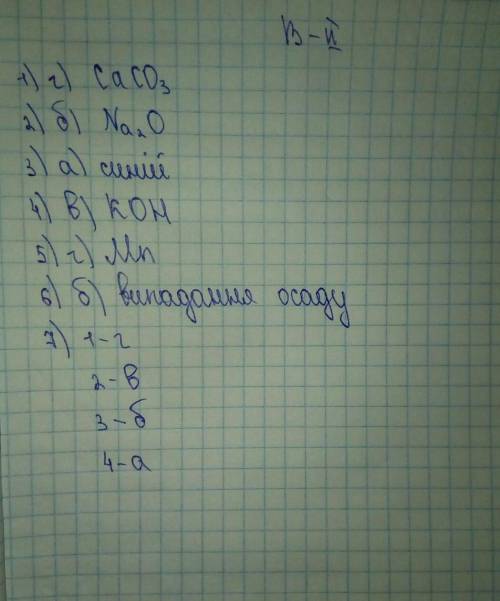 В-II
1) г) CaCO₃
2) б) Na₂O
3) а) синій
4) в) KOH
5) г) Mn
6) б) випадання осаду
7) 1-г
2-в
3-б
4-а